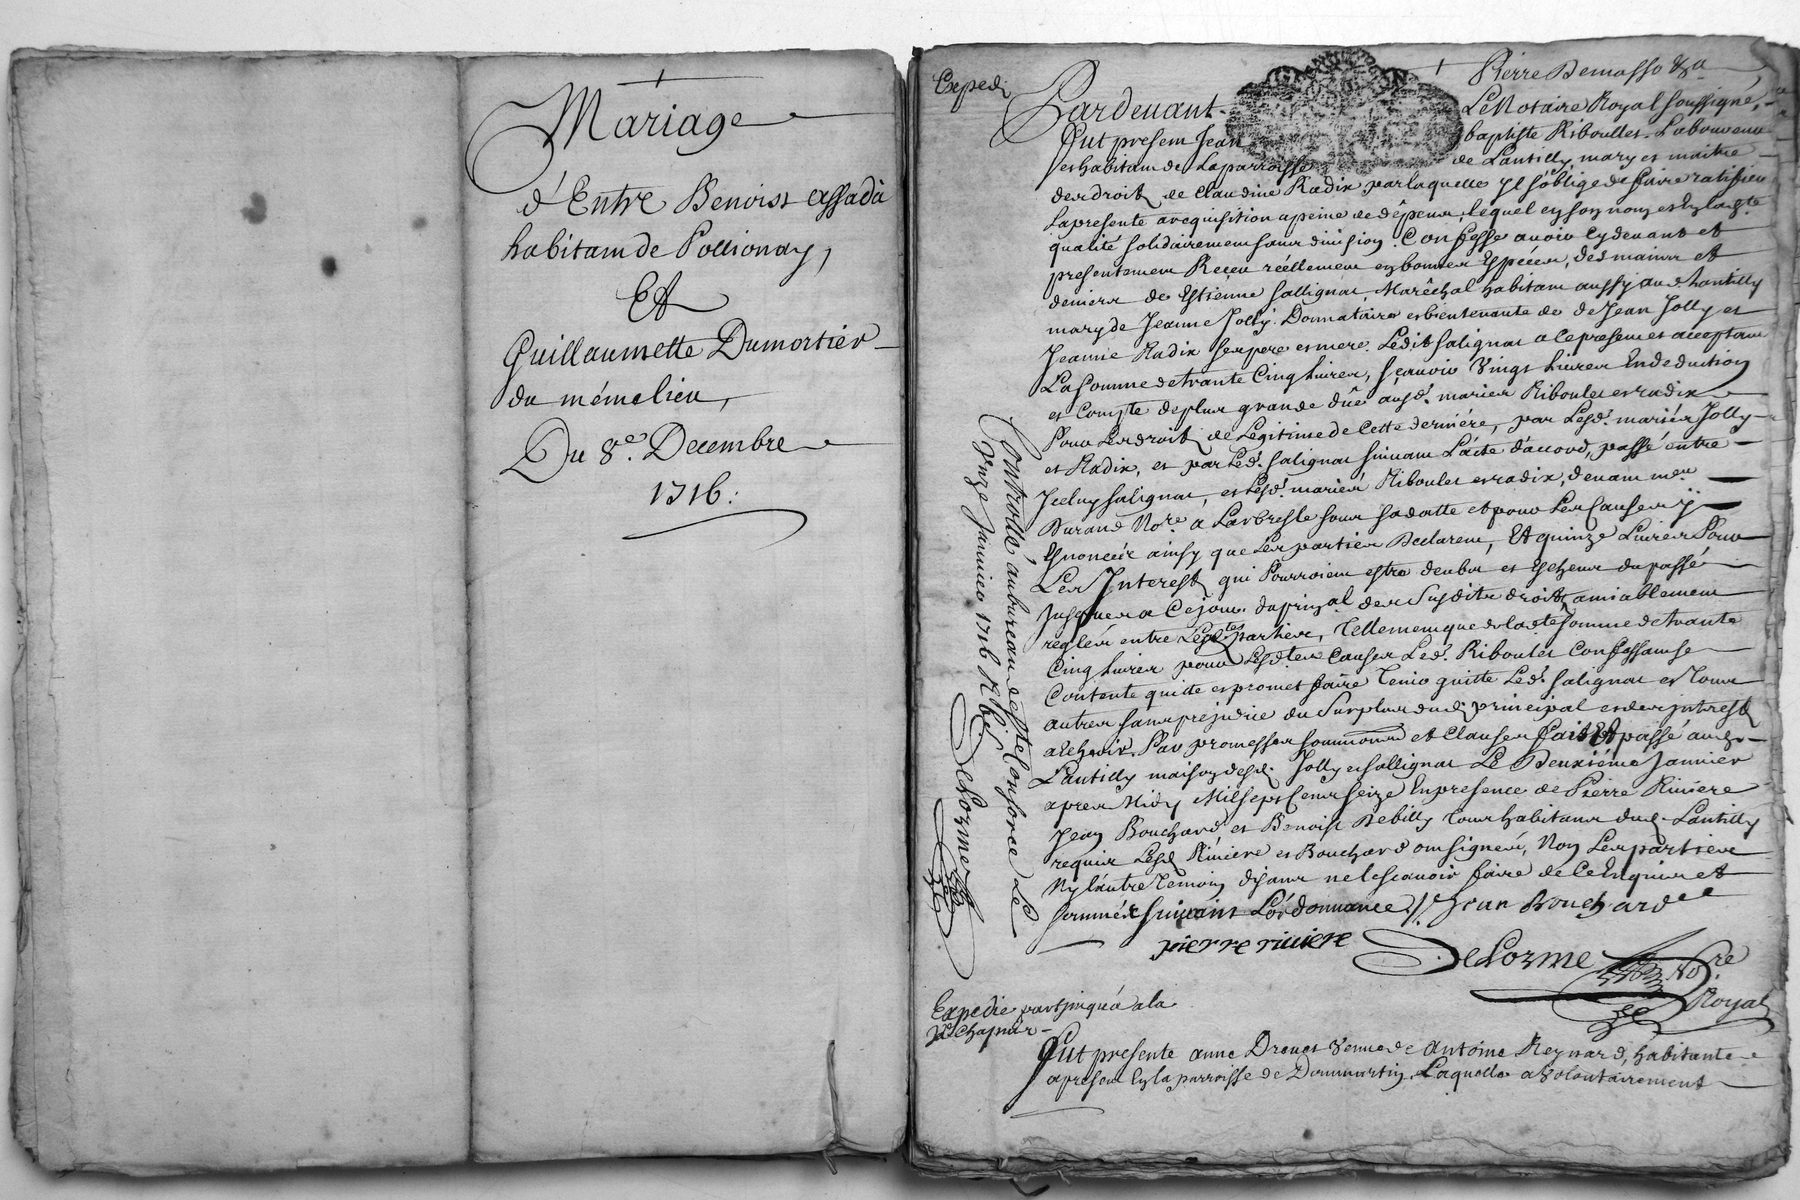 Mariage
d'Entre Benoist Assada
habitant de Pollionay,
Et
Guillaumette Dumortier
du même lieu,
Du 8e. Decembre
1716:
Expedi
Pierre Demasso &a
Pardevant Le Notaire Royal soussigné,
fut present Jean baptiste Riboullet Laboureur
et habitant de La parroisse de Lantilly mary et maitre
des droits de Claudine Radix par laquelle Il s'oblige de faire ratiffier
La presente acquisition a peine de dépens, lequel en son nom et
qualité solidairement sans division Confesse avoir Cydevant et
presentement Reçeu réellement en bonnes Especes, des mains et
deniers de Estienne Sallignat, Maréchal habitant aussy aud Lantilly
mary de Jeanne Jolly Donnataire et bientenante de de Jean Jolly et
Jeanne Radix ses pere et mere. Ledit Salignat a Ce present et acceptant
La somme de trante Cinq Livres, sçavoir Vingt Livres En deduction
et Compte de plus grande dûe ausd. mariés Riboulet et radix
Pour Les droits de Legitime de Cette derniére, par Lesd. mariés Jolly
et Radix, et par Led. Salignat suivant L'acte d'accord, passé entre
Iceluy Salignat, et Lesd. mariés Riboulet et radix, devant me.
Durand Nore. a Larbresle sous sa datte et pour Les Causes y
Enoncées ainsy que Les parties Declarent, Et quinze Livres Pour
Les Interests qui Pourroient estre deubs et Echeus du passé
Jusques a Ce jour du prinal des susdits droits amiablement
reglés entre Lesdtes parties, Tellement que de ladte somme de trante
Cinq Livres pour Lesdtes Causes Led. Riboulet Confessant se
Contente quitte et promet faire Tenir quitte Led. Salignat et Tous
autres sans prejudice du Surplus dud. principal et des intrests
a Echoir. Par promesses soumissions et Clauses fait Et passé aud.
Lantilly maison desd. Jolly et Sallignat Le Deuxiéme Janvier
apres Midy Mil sept Cens seize En presence de Pierre Riviere
Jean Bouchard et Benoist Debilly Tous habitans dud. Lantilly
requis Lesd Riviere et Bouchard ont signés, Non Les parties
Ny l'autre Temoin disans ne le scavoir faire de Ce Enquis et
sommés suivant L'ordonnance. // Jean Bouchard
pierre riviere
Delorme Nore
Royal
Controllé au bureau de Ste Consorce Le
Unze Janvier 1716 R. 6s
Delorme
Expedie
Fut presente anne Drevet Veuve de Antoine Reynard, habitante
a present En la parroisse de Dommartin, Laquelle a Volontairement